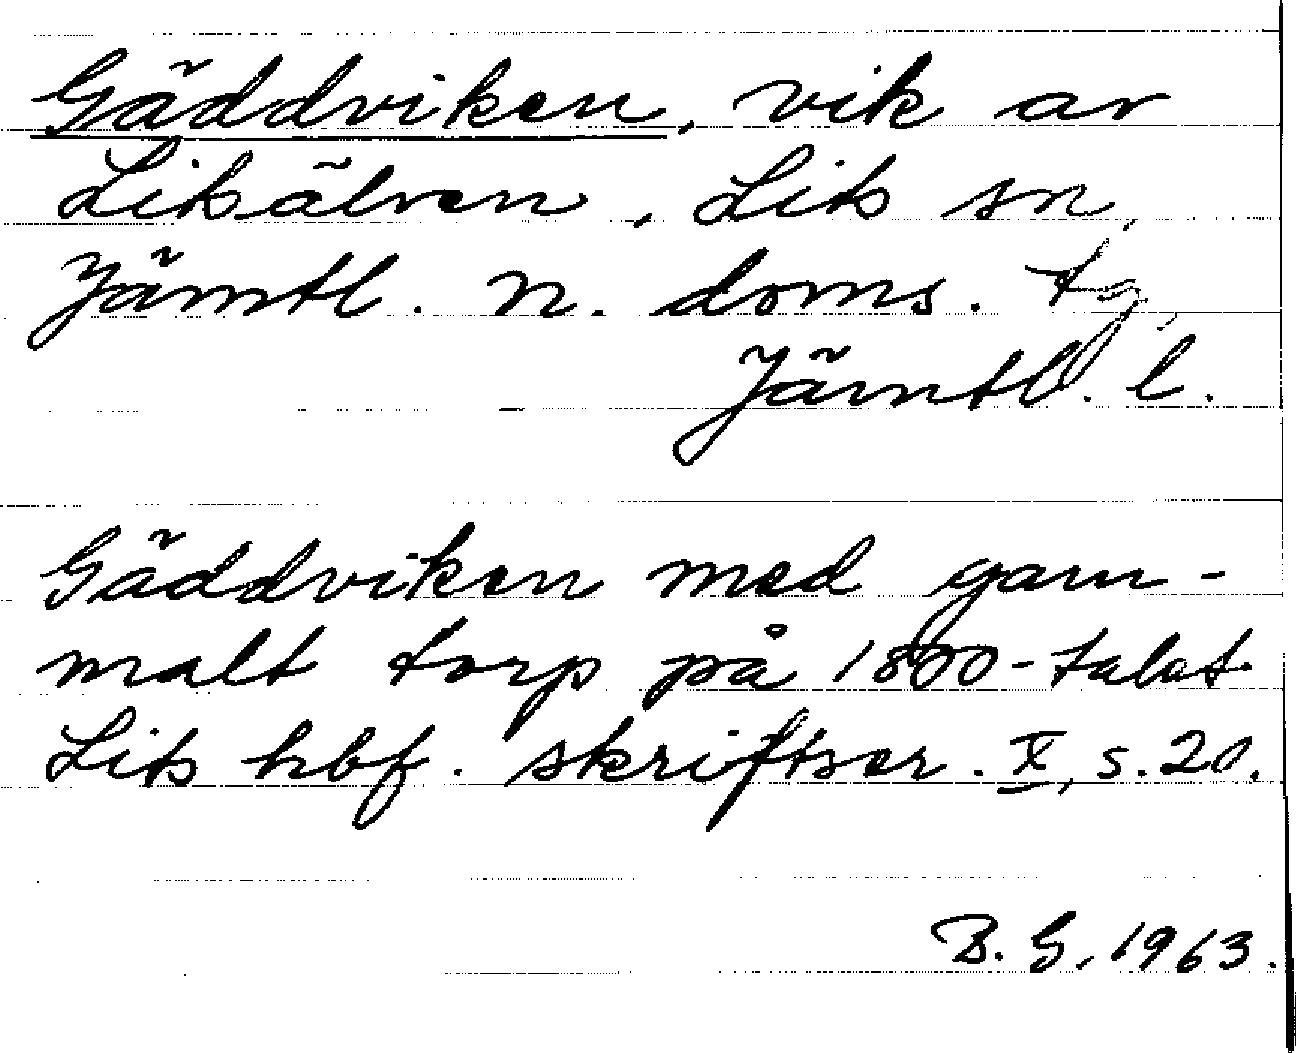 Gäddviken, vik av
Litsälven, Lits sn,
Jämtl. n. doms. tg,
Jämtl. l.
Gäddviken med gam-
malt torp på 1800-talet.
Lits hbf. skriftser. X, s. 20.
B. G. 1963.